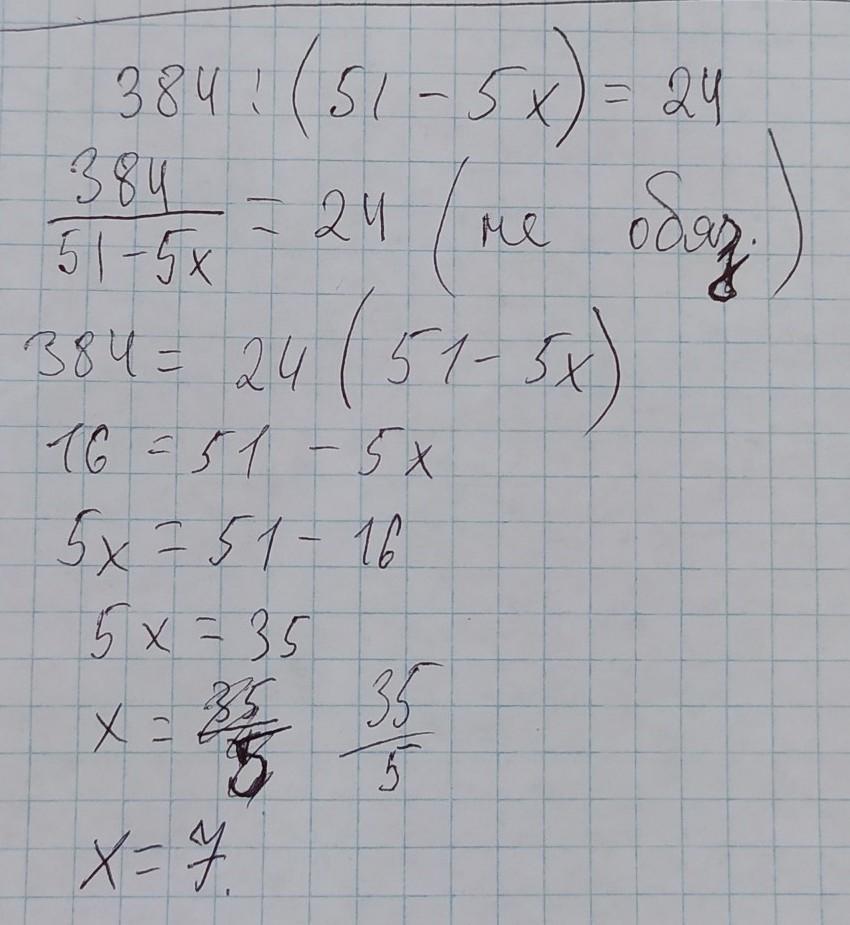 384 : (51 - 5x) = 24
384
51-5x
= 24 (не обяз.)
384 = 24 (51 - 5x)
16 = 51 - 5x
5x = 51 - 16
5x = 35
x = 35/5 35/5
x = 7.